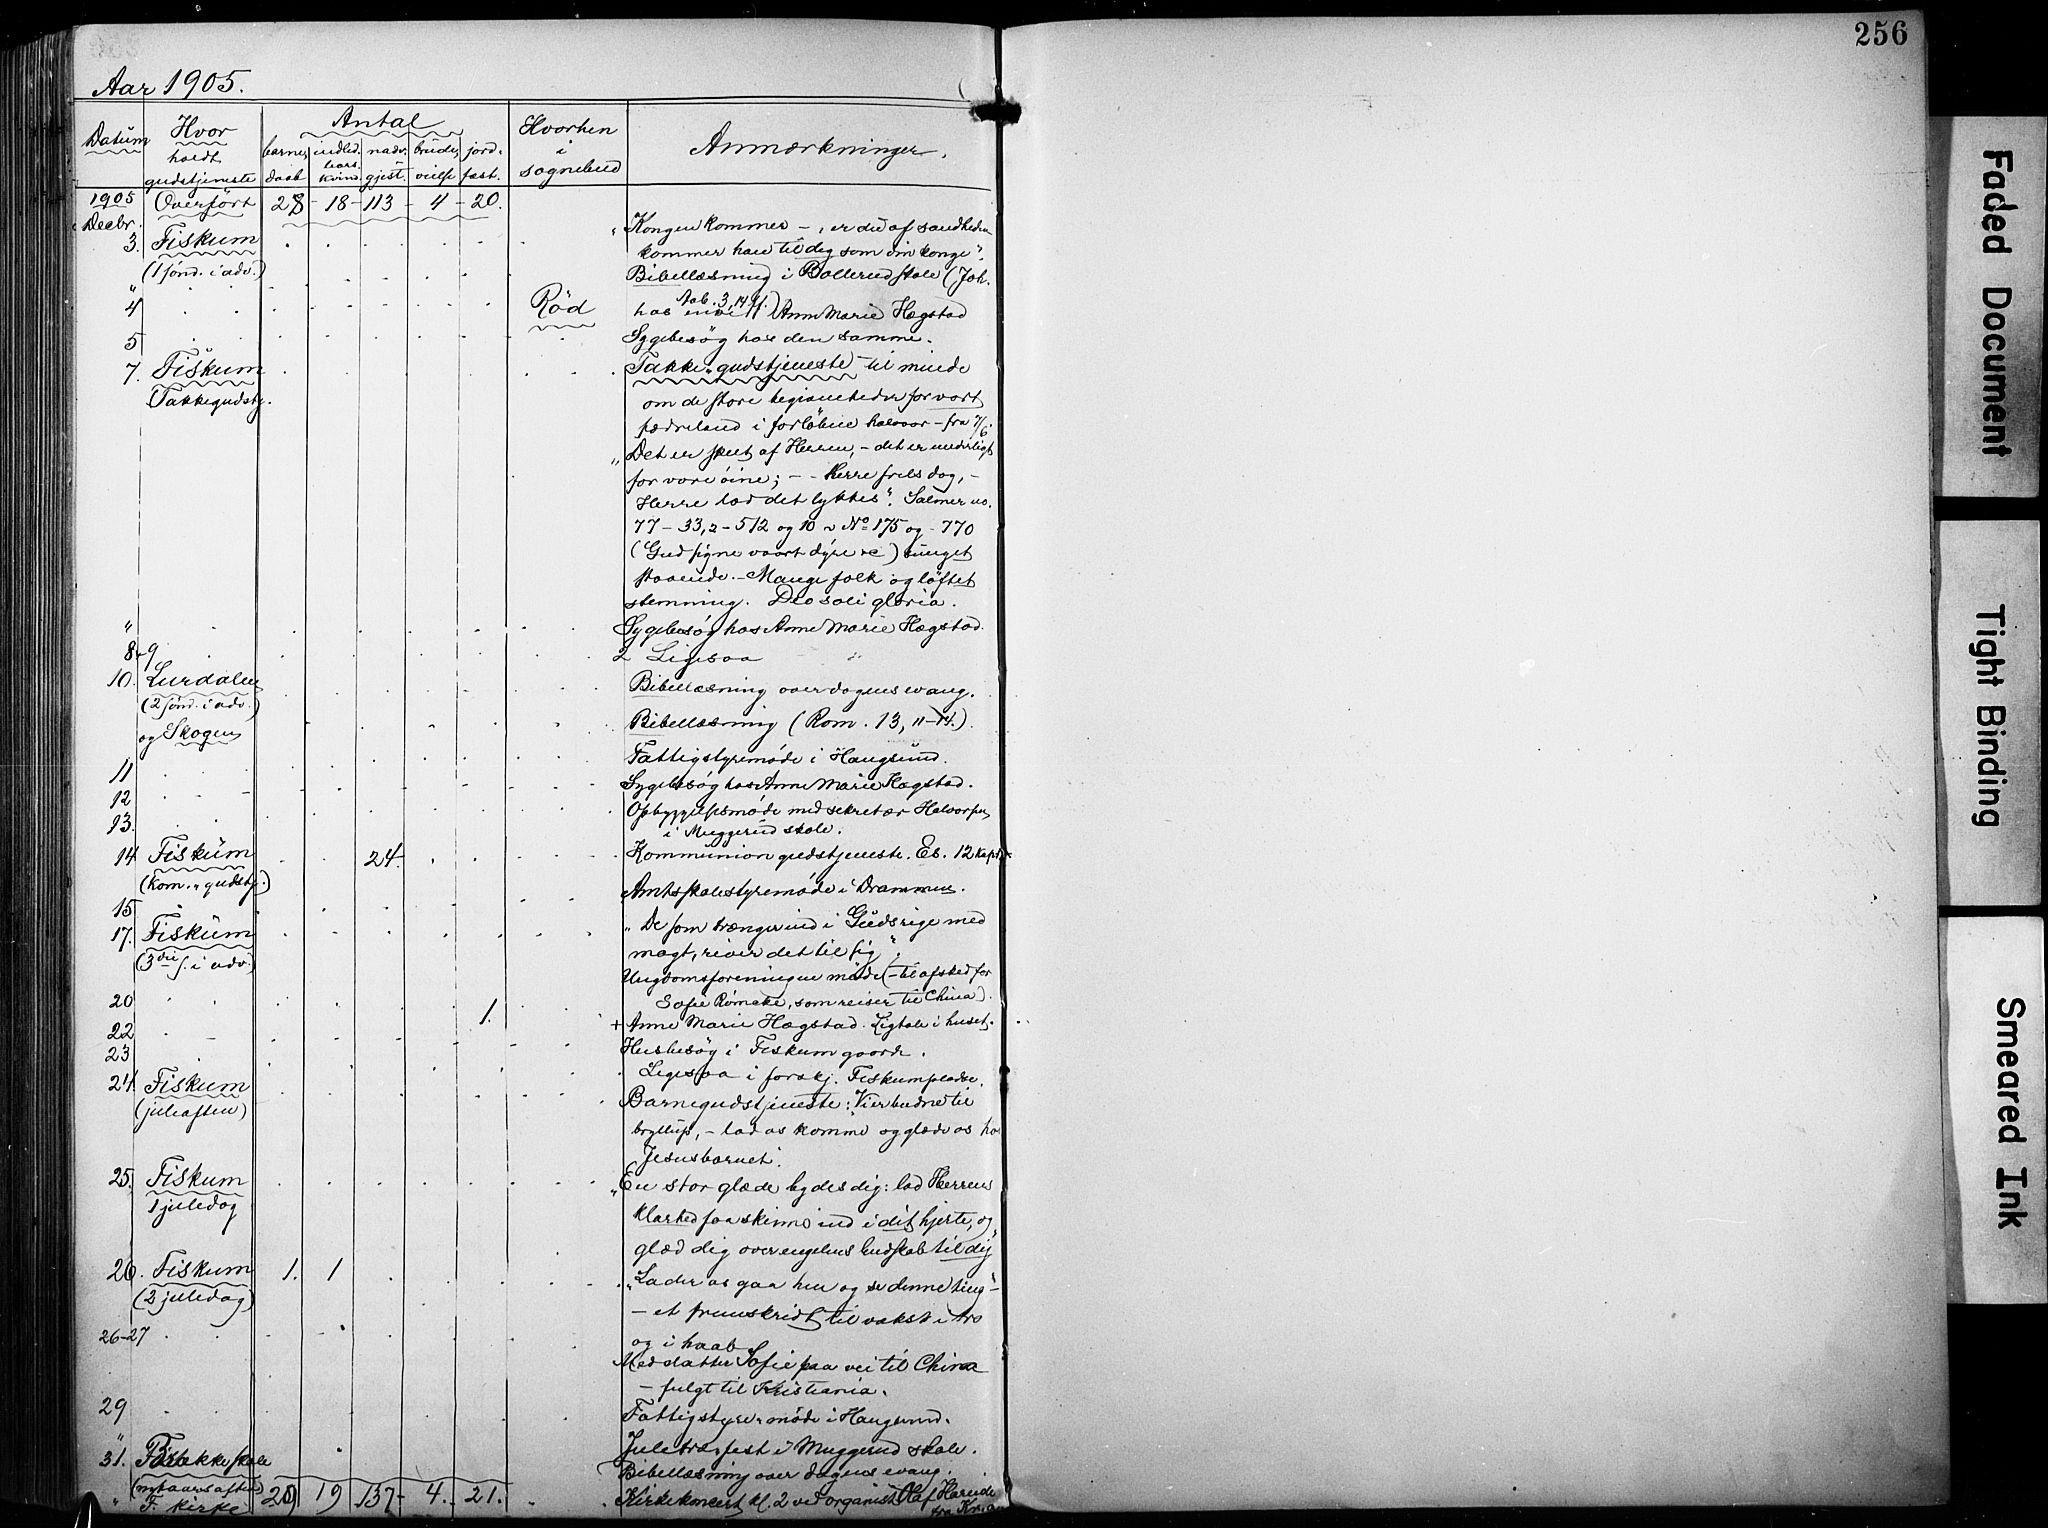 256
Aar 1905.
Datum
Hvor holdt gudstjeneste
Antal
barne daab
indled. bars. kvind.
nadv. gjest.
brude vielse
jord. fæst.
Hvorhen i sognebud
Anmærkninger.
1905 Overført 28 - 18 - 113 - 4 - 20.
Decbr.
3. Fiskum „Kongen kommer - , er du af sandheden
(1 sønd. i adv.) kommer han til dig som din konge".
" Bibellæsning i Bollerud skole (Joh.
Aab. 3, 14 ff.)
4 Rød hos Ann Marie Hægstad
5 Sygebesøg hos den samme.
7. Fiskum Takke-gudstjeneste til minde
Takkegudstj. om de store begivenheder for vort
fædreland i forløbne halvaar - fra 7/6.
„Det er skeet af Herren, - det er underligt
for vore øine; - - Herre frels dog, -
Herre lad det lykkes". Salmer no.
77 - 33,2 - 512 og 10 No 175 og - 770
(Gud signe vaart dyre &c) sunget
staaende. - Mange folk og løftet
stemning. Deo soli gloria.
" Sygebesøg hos Anne Marie Hægstad.
8 & 9 2 Ligesaa
10. Lurdalen Bibellæsning over dagens evang.
(2 sønd. i adv.)
og Skogen Bibellæsning (Rom. 13, 11-14.).
11 Fattigstyremøde i Haugsund.
12 Sygebesøg hos Anne Marie Hægstad.
13. Opbyggelsesmøde med sekretær Halvorsen
i Muggerud skole.
14 Fiskum 24. Kommunion gudstjeneste. Es. 12 kap.
(kom.-gudstj.)
15 Amtsskolestyremøde i Drammen.
17. Fiskum „De som trænger ind i Guds rige med
(3die s. i adv.) magt, river det til sig".
20 Ungdomsforeningen møde (- til afsked for
Sofie Rømcke, som reiser til China).
22 1. + Anne Marie Hægstad. Ligtale i huset.
23 Husbesøg i Fiskum gaarde.
Ligesaa i forskj. Fiskumpladse.
24. Fiskum Barnegudstjeneste: Vi er budne til
(juleaften) bryllup, - lad os komme og glæde os hos
Jesusbarnet.
25. Fiskum „En stor glæde bydes dig: lad Herrens
1 juledag klarhed faa skinne ind i dit hjerte, og
glæd dig over engelens budskab til dig"
26. Fiskum 1. 1 „Lader os gaa hen og se denne ting"
(2 juledag) - et fremskridt til vækst i tro
og i haab
26-27 Med datter Sofie paa vei til China
- fulgt til Kristiania.
29 Fattigstyremøde i Haugsund.
" Juletræfest i Muggerud skole.
31. skole Bibellæsning over dagens evang.
(nytaarsaften)
" F. kirke 29 19 137 - 4. 21. Kirkekoncert kl. 2 ved organist Olaf Hareide
fra Kr.a
Faded Document
Tight Binding
Smeared Ink